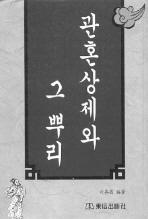 관혼상제와
그 뿌리
編著
東信出版社